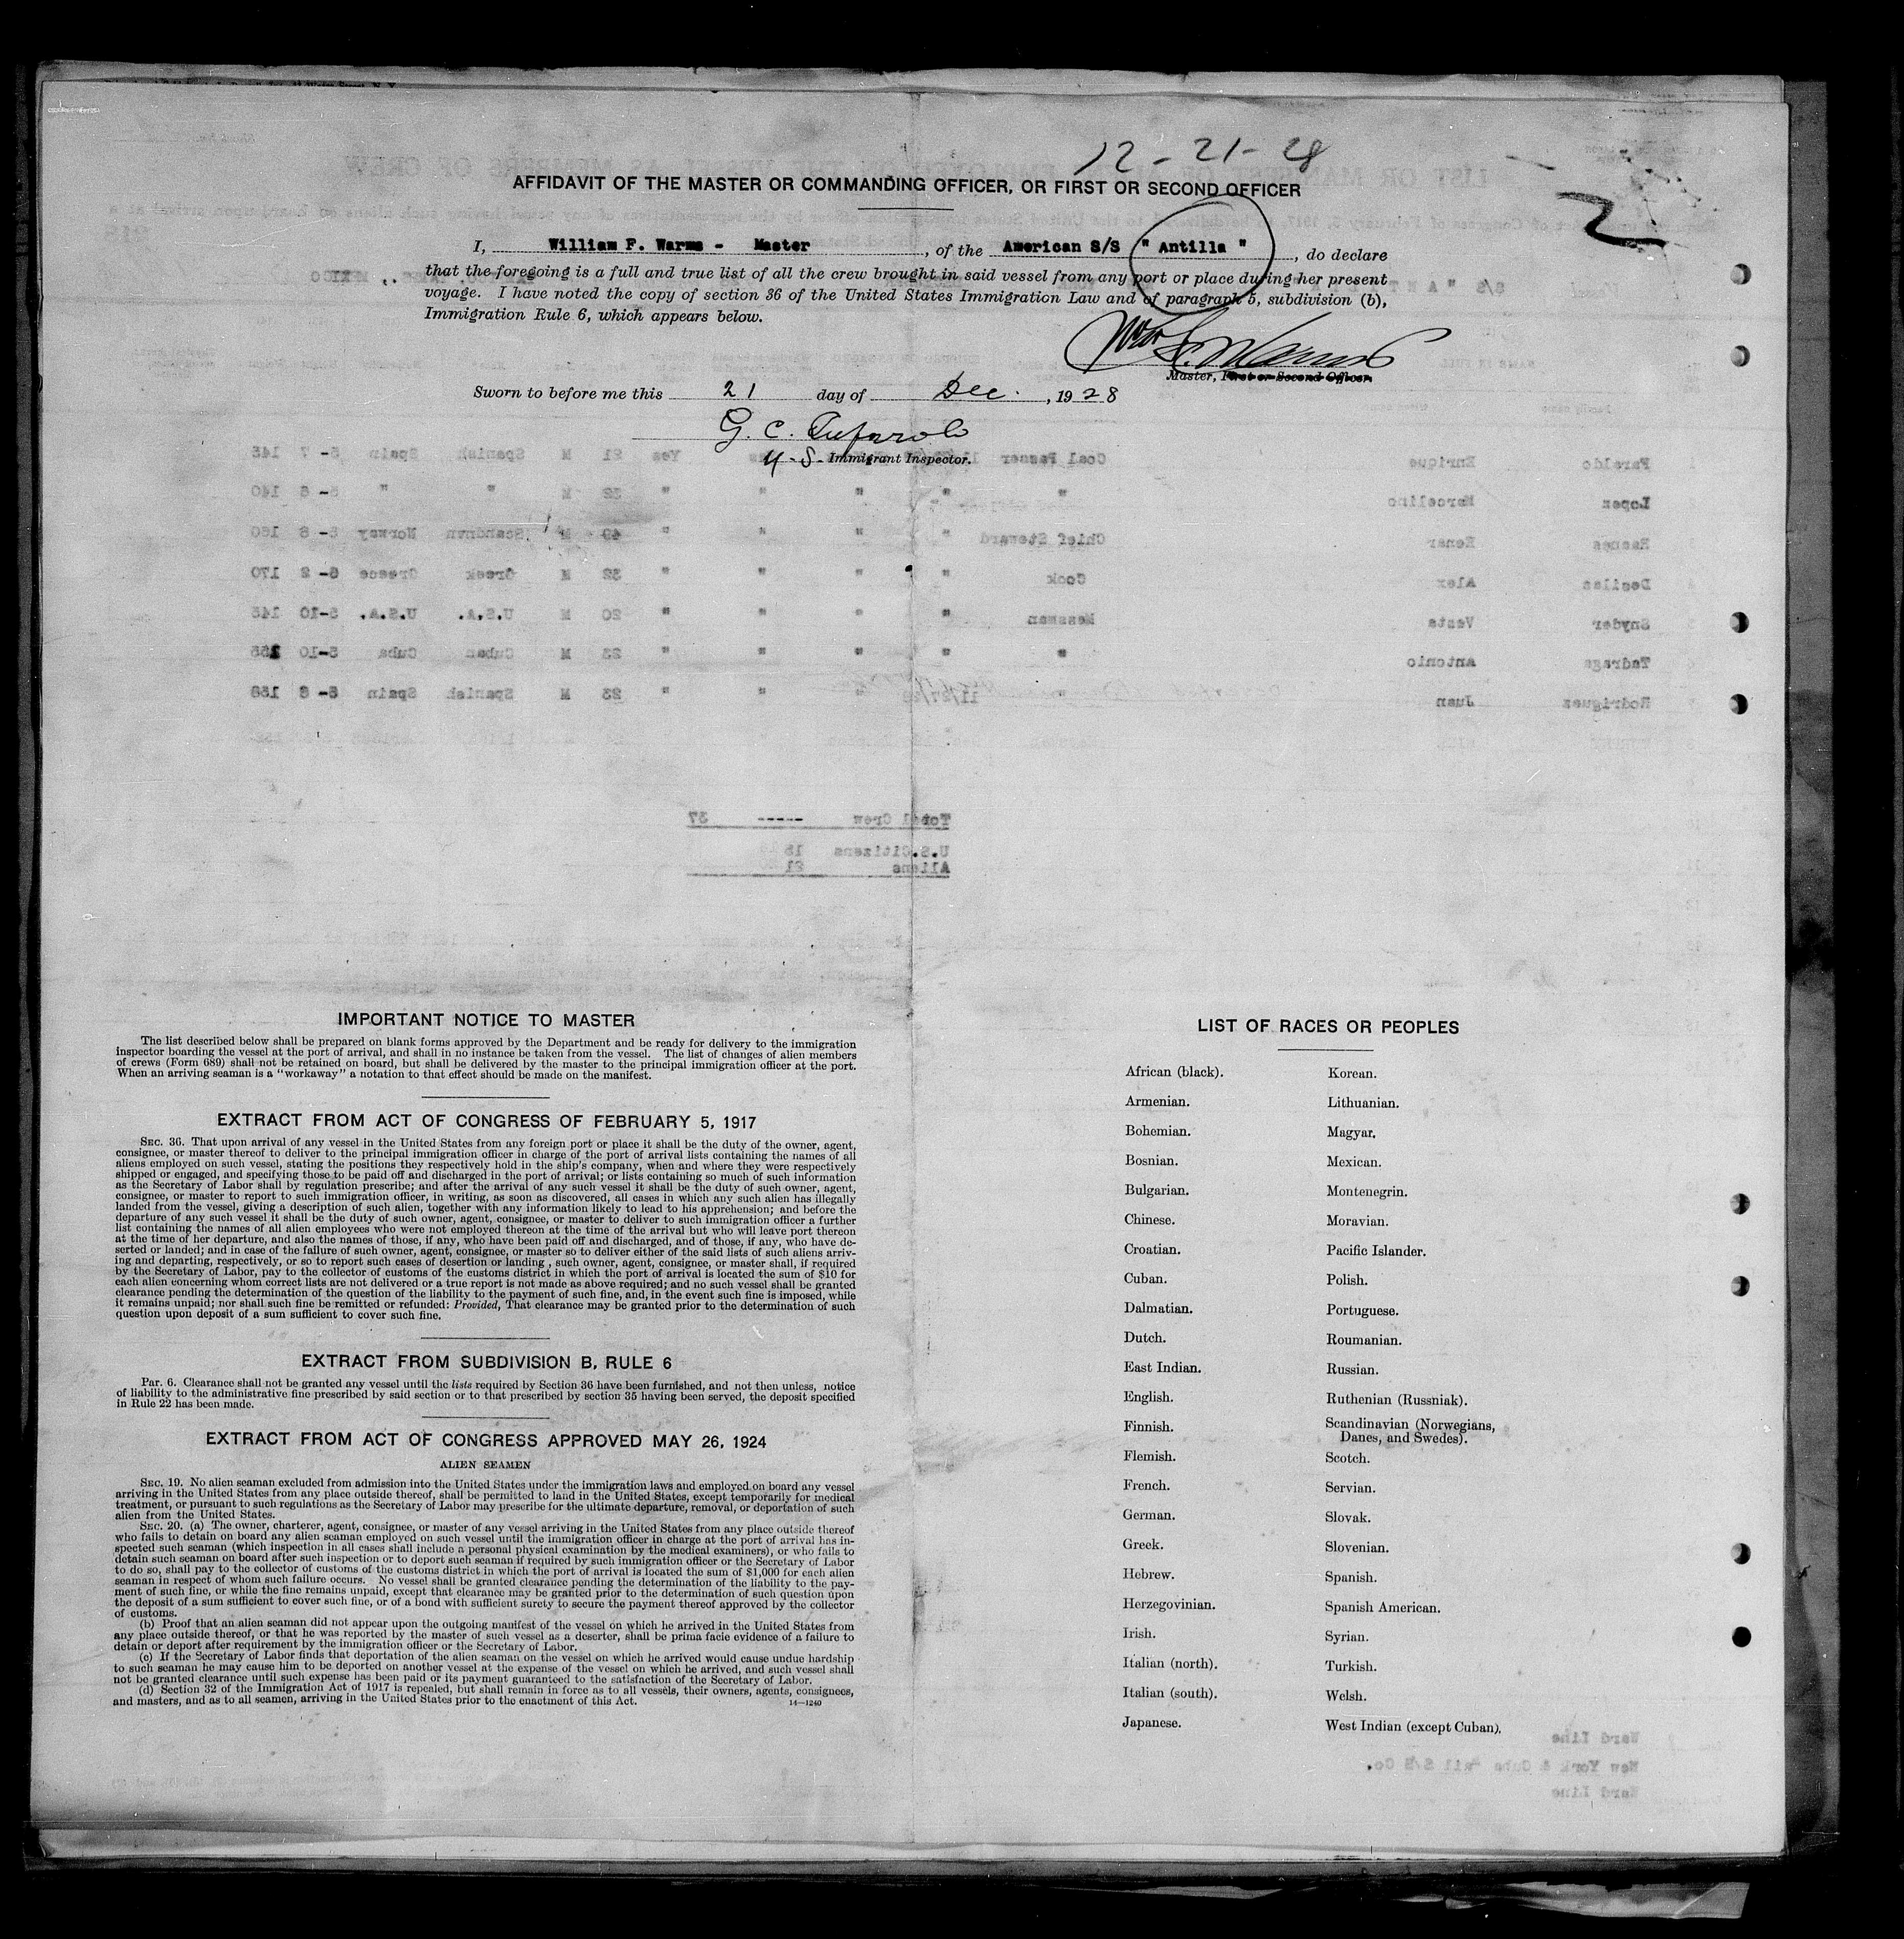 12-21-28
2
AFFIDAVIT OF THE MASTER OR COMMANDING OFFICER, OR FIRST OR SECOND OFFICER
I, William F. Warms - Master, of the American S/S "Antilla", do declare
that the foregoing is a full and true list of all the crew brought in said vessel from any port or place during her present
voyage. I have noted the copy of section 36 of the United States Immigration Law and of paragraph 5, subdivision (b),
Immigration Rule 6, which appears below.
Wm F. Warms
Master, First or Second Officer.
Sworn to before me this 21 day of Dec., 1928
G. C.
U.S. Immigrant Inspector.
Paraldo Enrique Coal Passer Yes 21 M Spanish Spain 5-7 145
Lopez Marcelino " " " " " M " " 140
Chief Steward " " " " 49 M Scandnvn Norway 5-8 160
Alex Cook " " " " 32 M Greek Greece 5-2 170
Snyder Messman " " " " 20 M U.S.A. U.S.A. 5-10 145
Antonio " " " " " 23 M Cuban Cuba 5-10
Rodriguez Juan " " " " 23 M Spanish Spain 5-8 158
Total Crew ----- 37
U.S.Citizens
Aliens 21
IMPORTANT NOTICE TO MASTER
The list described below shall be prepared on blank forms approved by the Department and be ready for delivery to the immigration
inspector boarding the vessel at the port of arrival, and shall in no instance be taken from the vessel. The list of changes of alien members
of crews (Form 689) shall not be retained on board, but shall be delivered by the master to the principal immigration officer at the port.
When an arriving seaman is a "workaway" a notation to that effect should be made on the manifest.
EXTRACT FROM ACT OF CONGRESS OF FEBRUARY 5, 1917
SEC. 36. That upon arrival of any vessel in the United States from any foreign port or place it shall be the duty of the owner, agent,
consignee, or master thereof to deliver to the principal immigration officer in charge of the port of arrival lists containing the names of all
aliens employed on such vessel, stating the positions they respectively hold in the ship's company, when and where they were respectively
shipped or engaged, and specifying those to be paid off and discharged in the port of arrival; or lists containing so much of such information
as the Secretary of Labor shall by regulation prescribe; and after the arrival of any such vessel it shall be the duty of such owner, agent,
consignee, or master to report to such immigration officer, in writing, as soon as discovered, all cases in which any such alien has illegally
landed from the vessel, giving a description of such alien, together with any information likely to lead to his apprehension; and before the
departure of any such vessel it shall be the duty of such owner, agent, consignee, or master to deliver to such immigration officer a further
list containing the names of all alien employees who were not employed thereon at the time of the arrival but who will leave port thereon
at the time of her departure, and also the names of those, if any, who have been paid off and discharged, and of those, if any, who have de-
serted or landed; and in case of the failure of such owner, agent, consignee, or master so to deliver either of the said lists of such aliens arriv-
ing and departing, respectively, or so to report such cases of desertion or landing , such owner, agent, consignee, or master shall, if required
by the Secretary of Labor, pay to the collector of customs of the customs district in which the port of arrival is located the sum of $10 for
each alien concerning whom correct lists are not delivered or a true report is not made as above required; and no such vessel shall be granted
clearance pending the determination of the question of the liability to the payment of such fine, and, in the event such fine is imposed, while
it remains unpaid; nor shall such fine be remitted or refunded: Provided, That clearance may be granted prior to the determination of such
question upon deposit of a sum sufficient to cover such fine.
EXTRACT FROM SUBDIVISION B, RULE 6
Par. 6. Clearance shall not be granted any vessel until the lists required by Section 36 have been furnished, and not then unless, notice
of liability to the administrative fine prescribed by said section or to that prescribed by section 35 having been served, the deposit specified
in Rule 22 has been made.
EXTRACT FROM ACT OF CONGRESS APPROVED MAY 26, 1924
ALIEN SEAMEN
SEC. 19. No alien seaman excluded from admission into the United States under the immigration laws and employed on board any vessel
arriving in the United States from any place outside thereof, shall be permitted to land in the United States, except temporarily for medical
treatment, or pursuant to such regulations as the Secretary of Labor may prescribe for the ultimate departure, removal, or deportation of such
alien from the United States.
SEC. 20. (a) The owner, charterer, agent, consignee, or master of any vessel arriving in the United States from any place outside thereof
who fails to detain on board any alien seaman employed on such vessel until the immigration officer in charge at the port of arrival has in-
spected such seaman (which inspection in all cases shall include a personal physical examination by the medical examiners), or who fails to
detain such seaman on board after such inspection or to deport such seaman if required by such immigration officer or the Secretary of Labor
to do so, shall pay to the collector of customs of the customs district in which the port of arrival is located the sum of $1,000 for each alien
seaman in respect of whom such failure occurs. No vessel shall be granted clearance pending the determination of the liability to the pay-
ment of such fine, or while the fine remains unpaid, except that clearance may be granted prior to the determination of such question upon
the deposit of a sum sufficient to cover such fine, or of a bond with sufficient surety to secure the payment thereof approved by the collector
of customs.
(b) Proof that an alien seaman did not appear upon the outgoing manifest of the vessel on which he arrived in the United States from
any place outside thereof, or that he was reported by the master of such vessel as a deserter, shall be prima facie evidence of a failure to
detain or deport after requirement by the immigration officer or the Secretary of Labor.
(c) If the Secretary of Labor finds that deportation of the alien seaman on the vessel on which he arrived would cause undue hardship
to such seaman he may cause him to be deported on another vessel at the expense of the vessel on which he arrived, and such vessel shall
not be granted clearance until such expense has been paid or its payment guaranteed to the satisfaction of the Secretary of Labor.
(d) Section 32 of the Immigration Act of 1917 is repealed, but shall remain in force as to all vessels, their owners, agents, consignees,
and masters, and as to all seamen, arriving in the United States prior to the enactment of this Act.
14—1240
LIST OF RACES OR PEOPLES
African (black). Korean.
Armenian. Lithuanian.
Bohemian. Magyar.
Bosnian. Mexican.
Bulgarian. Montenegrin.
Chinese. Moravian.
Croatian. Pacific Islander.
Cuban. Polish.
Dalmatian. Portuguese.
Dutch. Roumanian.
East Indian. Russian.
English. Ruthenian (Russniak).
Finnish. Scandinavian (Norwegians,
Danes, and Swedes).
Flemish. Scotch.
French. Servian.
German. Slovak.
Greek. Slovenian.
Hebrew. Spanish.
Herzegovinian. Spanish American.
Irish. Syrian.
Italian (north). Turkish.
Italian (south). Welsh.
Japanese. West Indian (except Cuban).
Ward Line
New York & Cuba Mail S/S Co.
Ward Line